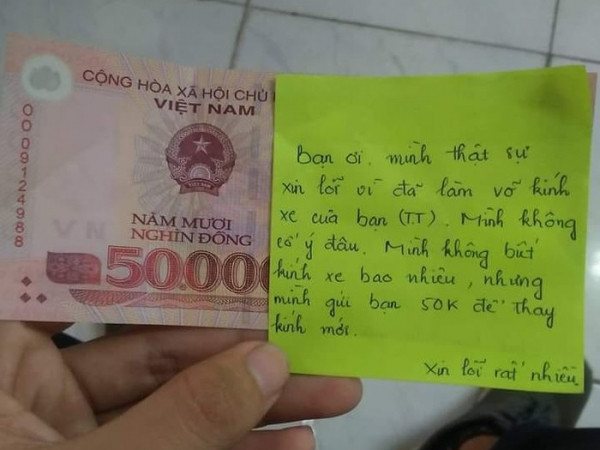 CỘNG HÒA XÃ HỘI CHỦ
VIỆT NAM
0009124988
VN
NĂM MƯƠI
NGHÌN ĐỒNG
50.000
Bạn ơi, mình thật sự
xin lỗi vì đã làm vỡ kính
xe của bạn (TT). Mình không
cố ý đâu. Mình không biết
kính xe bao nhiêu, nhưng
mình gửi bạn 50K để thay
kính mới.
Xin lỗi rất nhiều